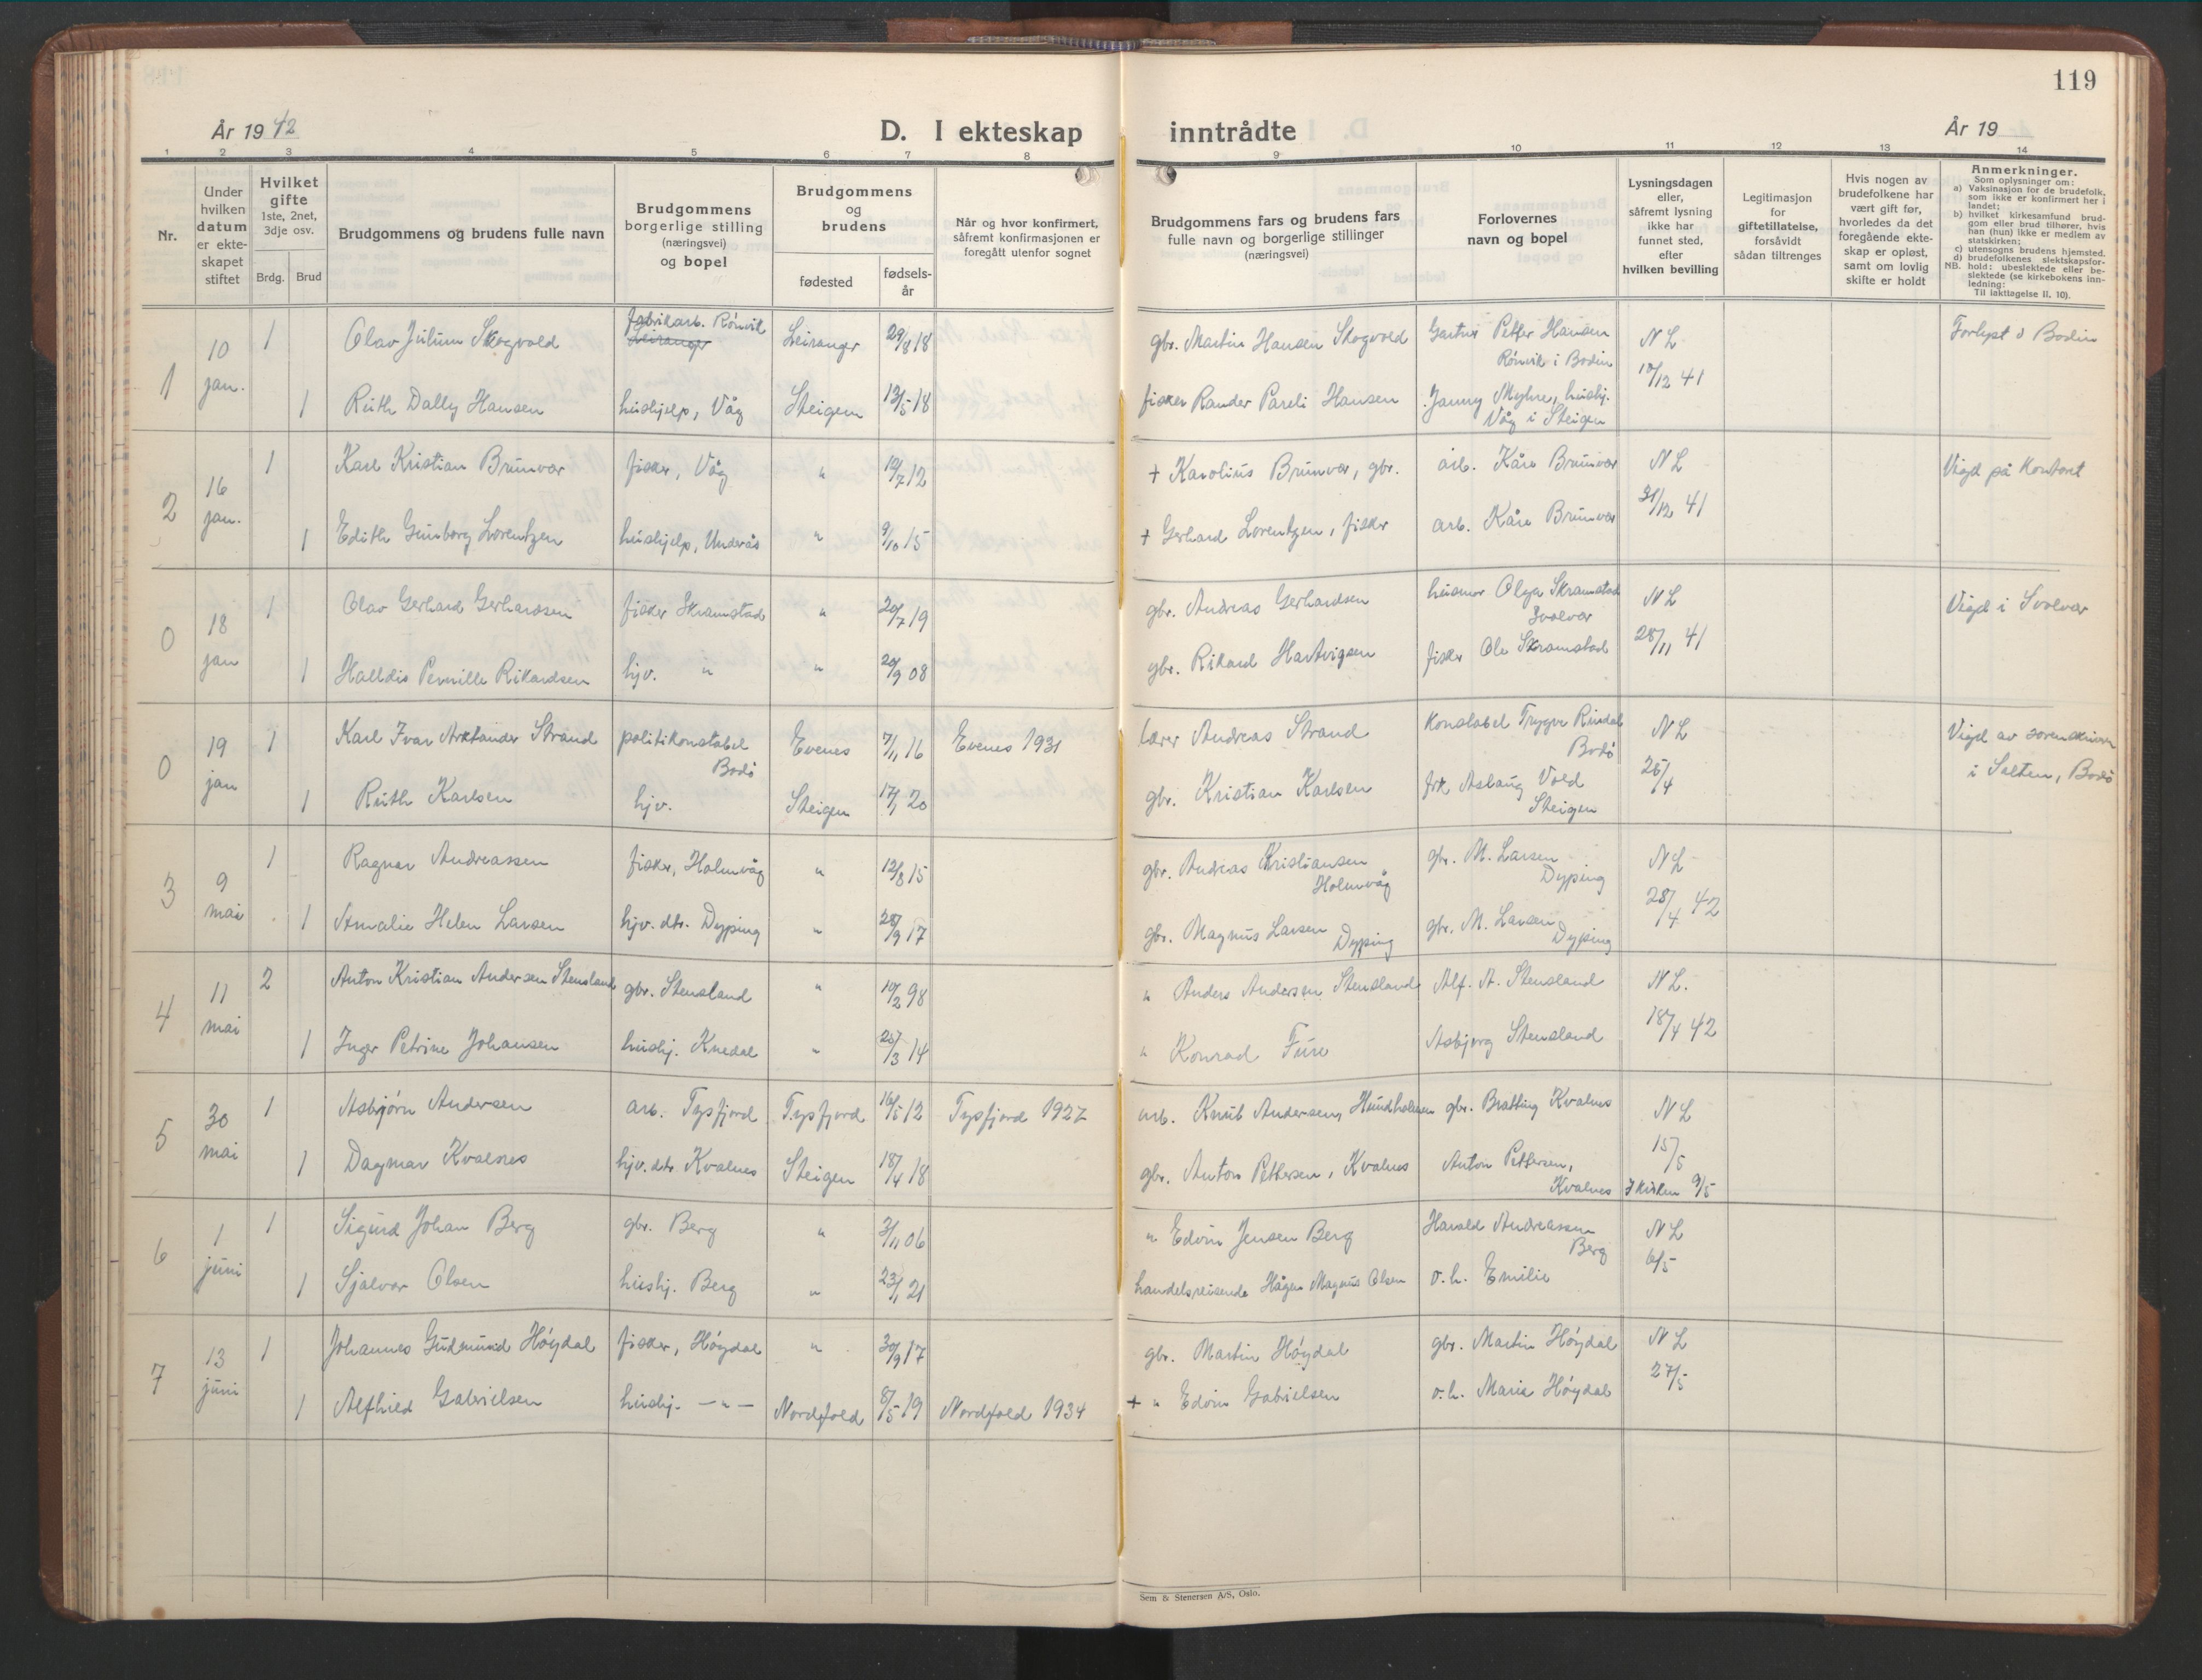 119
År 1942
D. I ekteskap inntrådte
År 19
1 2 3 4 5 6 7 8 9 10 11 12 13 14
Nr.
Under hvilken datum er ekteskapet stiftet
Hvilket gifte 1ste, 2net, 3dje osv.
Brdg. Brud
Brudgommens og brudens fulle navn
Brudgommens borgerlige stilling (næringsvei) og bopel
Brudgommens og brudens
fødested
fødselsår
Når og hvor konfirmert, såfremt konfirmasjonen er foregått utenfor sognet
Brudgommens fars og brudens fars fulle navn og borgerlige stillinger (næringsvei)
Forlovernes navn og bopel
Lysningsdagen eller, såfremt lysning ikke har funnet sted, efter hvilken bevilling
Legitimasjon for giftetillatelse, forsåvidt sådan tiltrenges
Hvis nogen av brudefolkene har vært gift før, hvorledes da det foregående ekteskap er opløst, samt om lovlig skifte er holdt
Anmerkninger.
Som oplysninger om:
a) Vaksinasjon for de brudefolk, som ikke er konfirmert her i landet;
b) hvilket kirkesamfund brudgom eller brud tilhører, hvis han (hun) ikke er medlem av statskirken;
c) utensogns brudens hjemsted.
d) brudefolkenes slektskapsforhold: ubeslektede eller beslektede (se kirkebokens innledning:
NB. Til iakttagelse II. 10).
1 10 jan. 1 Olav Julium Skogvold fabrikarb. Rønvik Leiranger Leiranger 29/8 18 gbr. Martin Hansen Skogvold Gartner Petter Hansen Rønvik i Bodin N L 10/12 41 Forlyst i Bodin
1 Ruth Dally Hansen hushjelp, Våg Steigen 13/5 18 fisker Rander Pareli Hansen Janny Myhre, hushj. Våg i Steigen
2 16 jan. 1 Karl Kristian Brunvær fisker, Våg " 10/7 12 + Karolius Brunvær, gbr. arb. Kåre Brunvær N L 31/12 41 Vigd på Kontoret
1 Edith Gunborg Lorentzen hushjelp, Undrås " 9/10 15 + Gerhard Lorentzen, fisker arb. Kåre Brunvær
0 18 jan 1 Olav Gerhard Gerhardsen fisker Skramstad " 20/7 19 gbr. Andreas Gerhardsen husmor Olga Skramstad Svolvær N L 28/11 41 Vigd i Svolvær
1 Halldis Pernille Rikardsen hjv. " " 20/9 08 gbr. Rikard Hartvigsen fisker Ole Skramstad
0 19 jan 1 Karl Ivar Arktander Strand politikonstabel Bodø Evenes 7/11 16 Evenes 1931 lærer Andreas Strand Konstabel Trygve Rindal Bodø N L 25/4 Vigd av sorenskriver i Salten, Bodø
1 Ruth Karlsen hjv. Steigen 17/1 20 gbr. Kristian Karlsen frk Aslaug Vold Steigen
3 9 mai 1 Ragnar Andreassen fisker, Holmvåg " 12/8 15 gbr. Andreas Kristiansen Holmvåg gbr. M. Larsen Dyping N L 28/4 42
1 Amalie Helen Larsen hjv. dtr. Dyping " 28/9 17 gbr. Magnus Larsen Dyping gbr. M. Larsen Dyping
4 11 mai 2 Anton Kristian Andersen Stensland gbr. Stensland " 10/2 98 " Anders Andersen Stensland Alf. A. Stensland N L. 18/4 42
1 Inger Petrine Johansen hushj. Knedal " 25/3 14 " Konrad Fure Asbjørg Stensland
5 30 mai 1 Asbjørn Andersen arb. Tysfjord Tysfjord 16/5 12 Tysfjord 1927 arb. Knut Andersen, Hundholmen gbr. Bratting Kvalnes N L 15/5
1 Dagmar Kvalnes hjv. dtr Kvalnes Steigen 18/4 18 gbr. Anton Pettersen, Kvalnes Anton Pettersen, Kvalnes I kirken 9/5
6 1 juni 1 Sigurd Johan Berg gbr. Berg " 3/11 06 " Edvin Jensen Berg Harald Andreassen Berg N L 6/5
1 Sjalvor Olsen hushj. Berg " 23/1 21 handelsreisende Hågen Magnus Olsen o.h. Emilie
7 13 juni 1 Johannes Gudmund Høydal fisker, Høydal " 30/9 17 gbr. Martin Høydal gbr. Martin Høydal N L 27/5
1 Alfhild Gabrielsen hushj. — " — Nordfold 8/5 19 Nordfold 1934 + " Edvin Gabrielsen o.h. Marie Høydal
Sem & Stenersen A/S, Oslo.